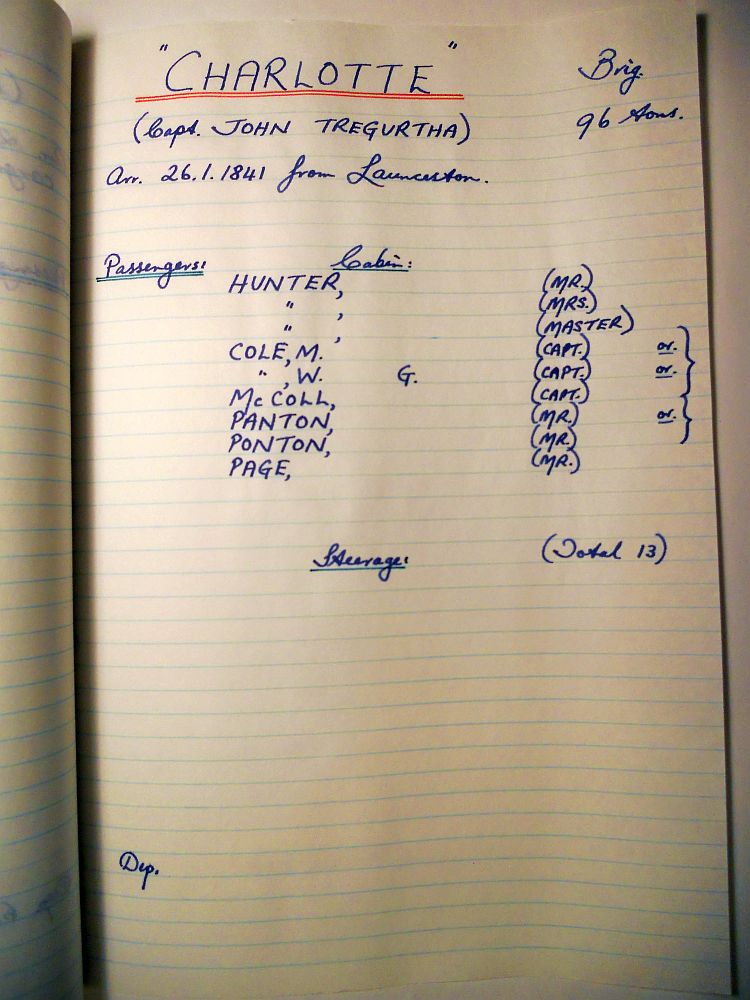 "CHARLOTTE" Brig.
(Capt. JOHN TREGURTHA) 96 tons.
Arr. 26.1.1841 from Launceston.
Passengers: Cabin:
HUNTER, (MR.)
" , (MRS.)
" , (MASTER)
COLE, M. (CAPT.) or.
" , W. G. (CAPT.) or.
McCOLL, (CAPT.)
PANTON, (MR.) or.
PONTON, (MR.)
PAGE, (MR.)
Steerage: (Total 13)
Dep.